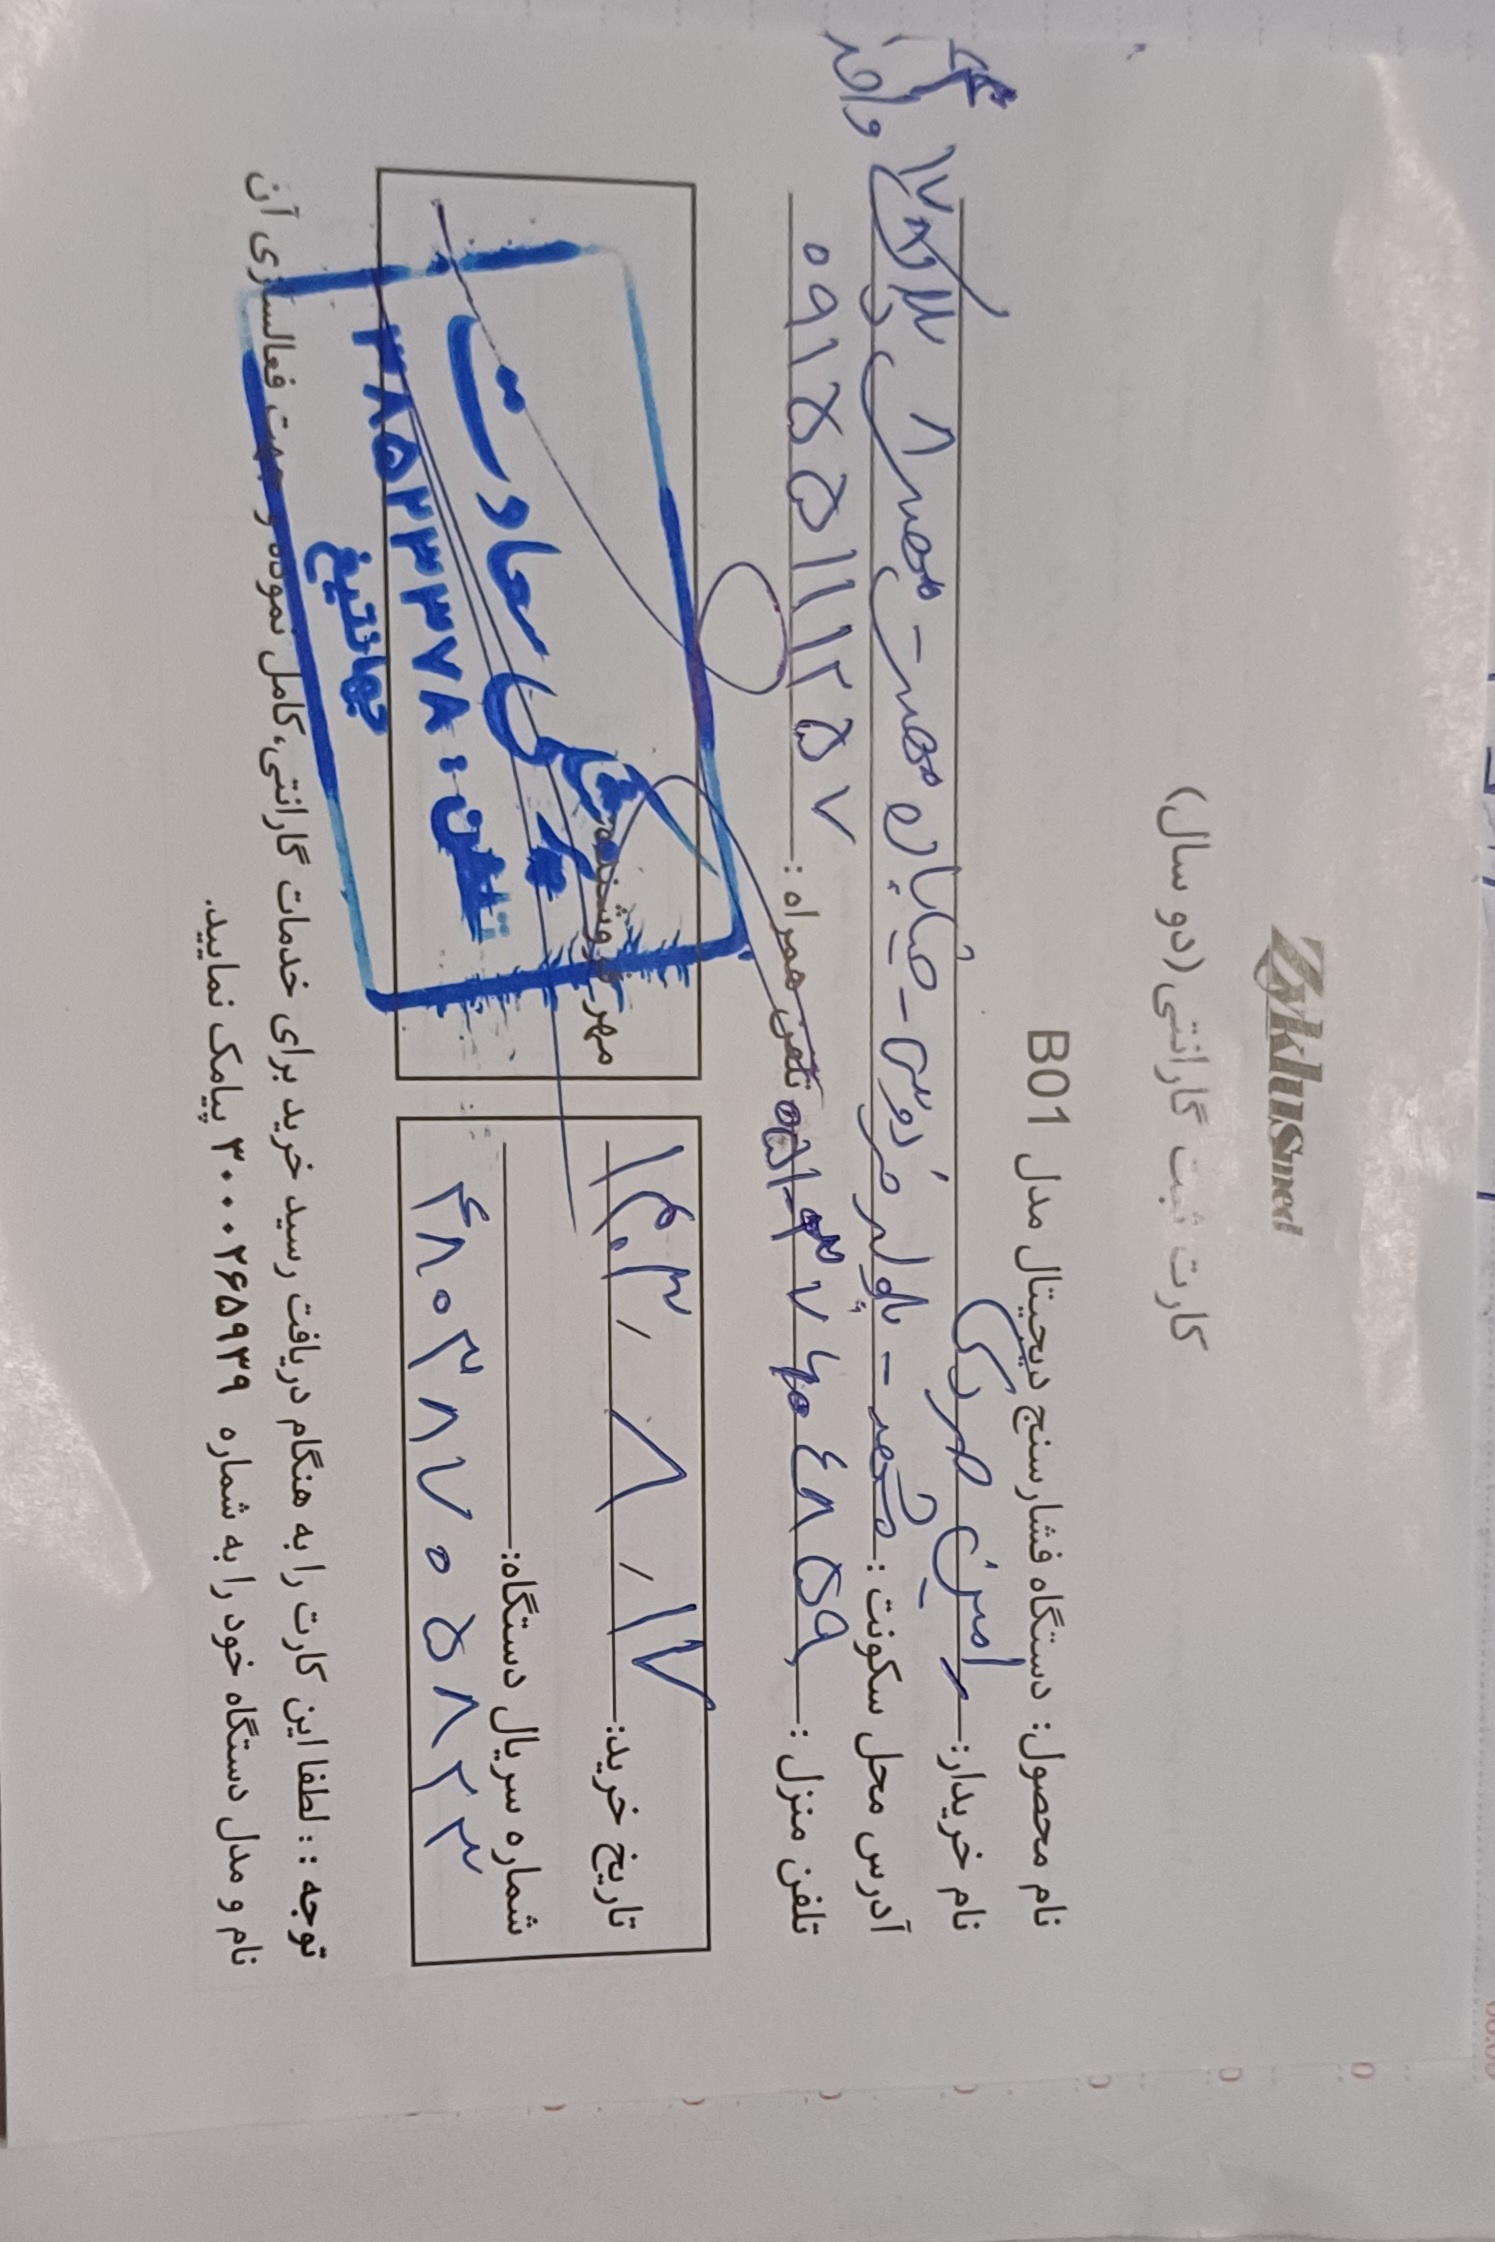 Zyklusmed
کارت ثبت گارانتی (دو سال)
نام محصول: دستگاه فشارسنج دیجیتال مدل B01
نام خریدار: امین صدری
آدرس محل سکونت: مشهد - بلوار فردوسی - خیابان مهدی - مهدی ۸ پلاک ۱۷ واحد
تلفن منزل: ۰۵۱-۳۷۶۰۴۸۵۹ تلفن همراه: ۰۹۱۵۵۱۱۲۵۷
تاریخ خرید: ۱۴۰۳/۸/۱۷
شماره سریال دستگاه:
۴۸۰۳۸۷۰۵۸۲۳
مهر فروشنده
سعادت
تلفن: ۳۸۵۲۳۳۷۸
توجه :: لطفا این کارت را به هنگام دریافت رسید خرید برای خدمات گارانتی، کامل نموده و جهت فعالسازی آن
نام و مدل دستگاه خود را به شماره ۳۰۰۰۲۶۵۹۳۹ پیامک نمایید.